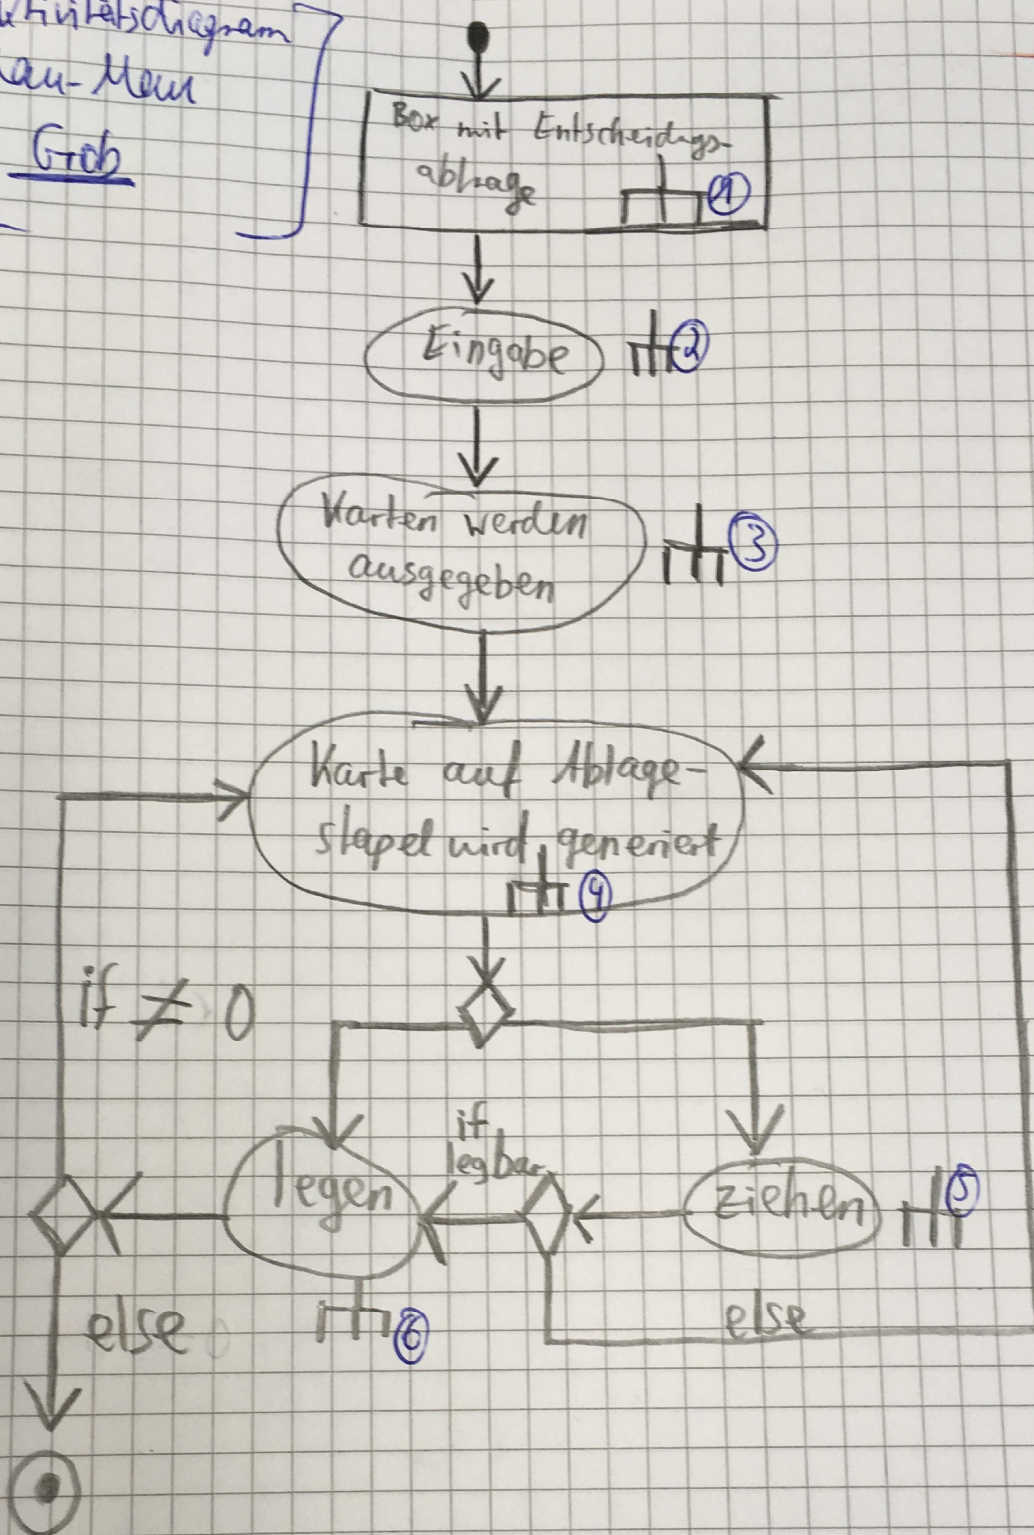 ktivitätsdiagram
au-Mau
Grob
Box mit Entscheidungs-
abfrage
1
Eingabe
2
Karten werden
ausgegeben
3
Karte auf Ablage-
stapel wird generiert
4
if ≠ 0
if
legbar
legen
ziehen
5
else
else
6